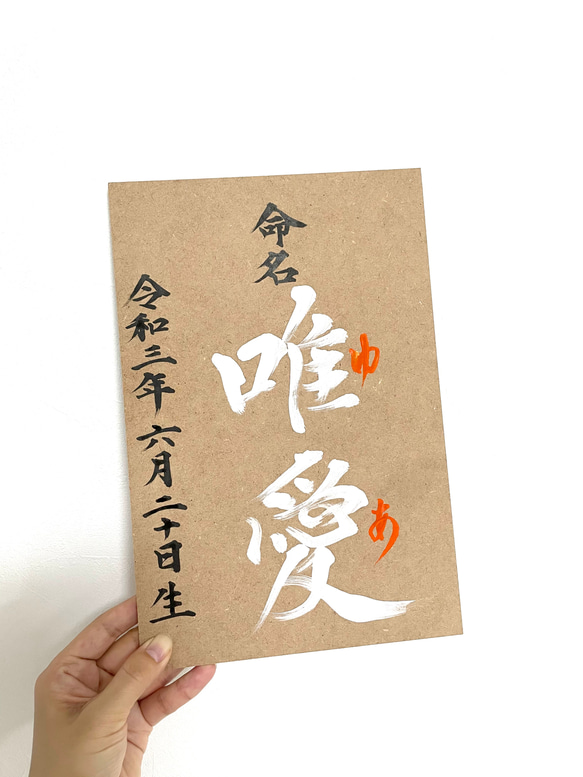 命名
唯愛
ゆあ
令和三年六月二十日生